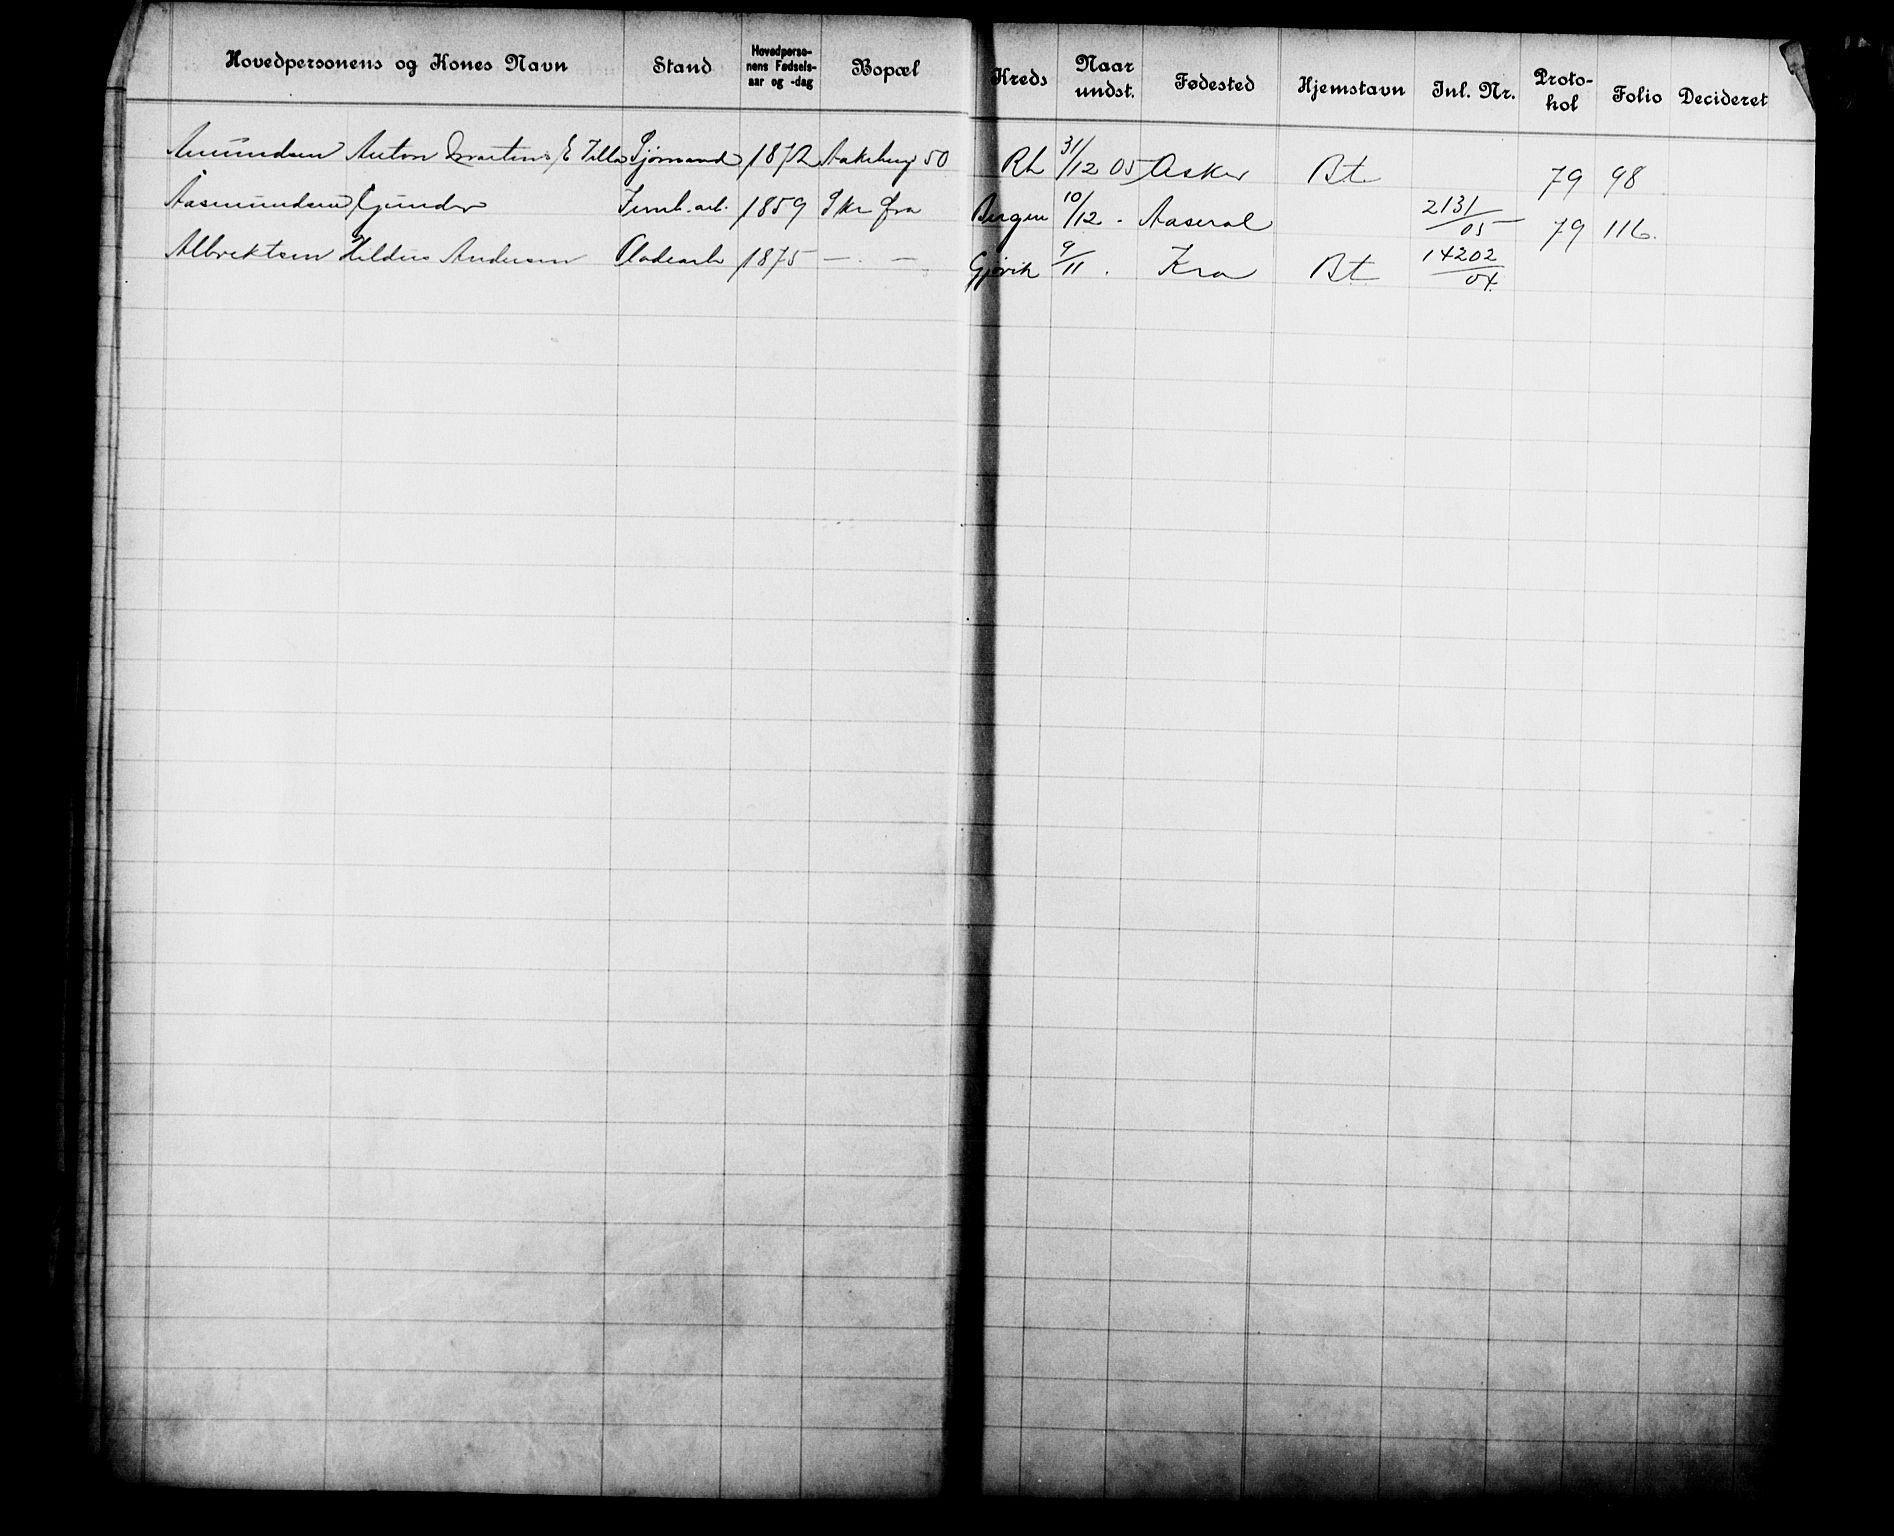 Hovedpersonens og Kones Navn Stand Hovedperso-nens Fødsels-aar og -dag Bopæl Kreds Naar undst. Fødested Hjemstavn Inl. Nr. Proto-kol Folio Decideret
Amundsen Anton Martin E Tilla 1872 Aakeberg 50 Rh 31/12 05 Asker Bt 79 98
Aasmundsen Gunder Jernb. arb. 1859 Skr fra Bergen 10/12 - Aaseral 2131/05 79 116.
Albrektsen Andersen 1875 — . — Gjøvik 9/11 . Kra Bt 14202/04.